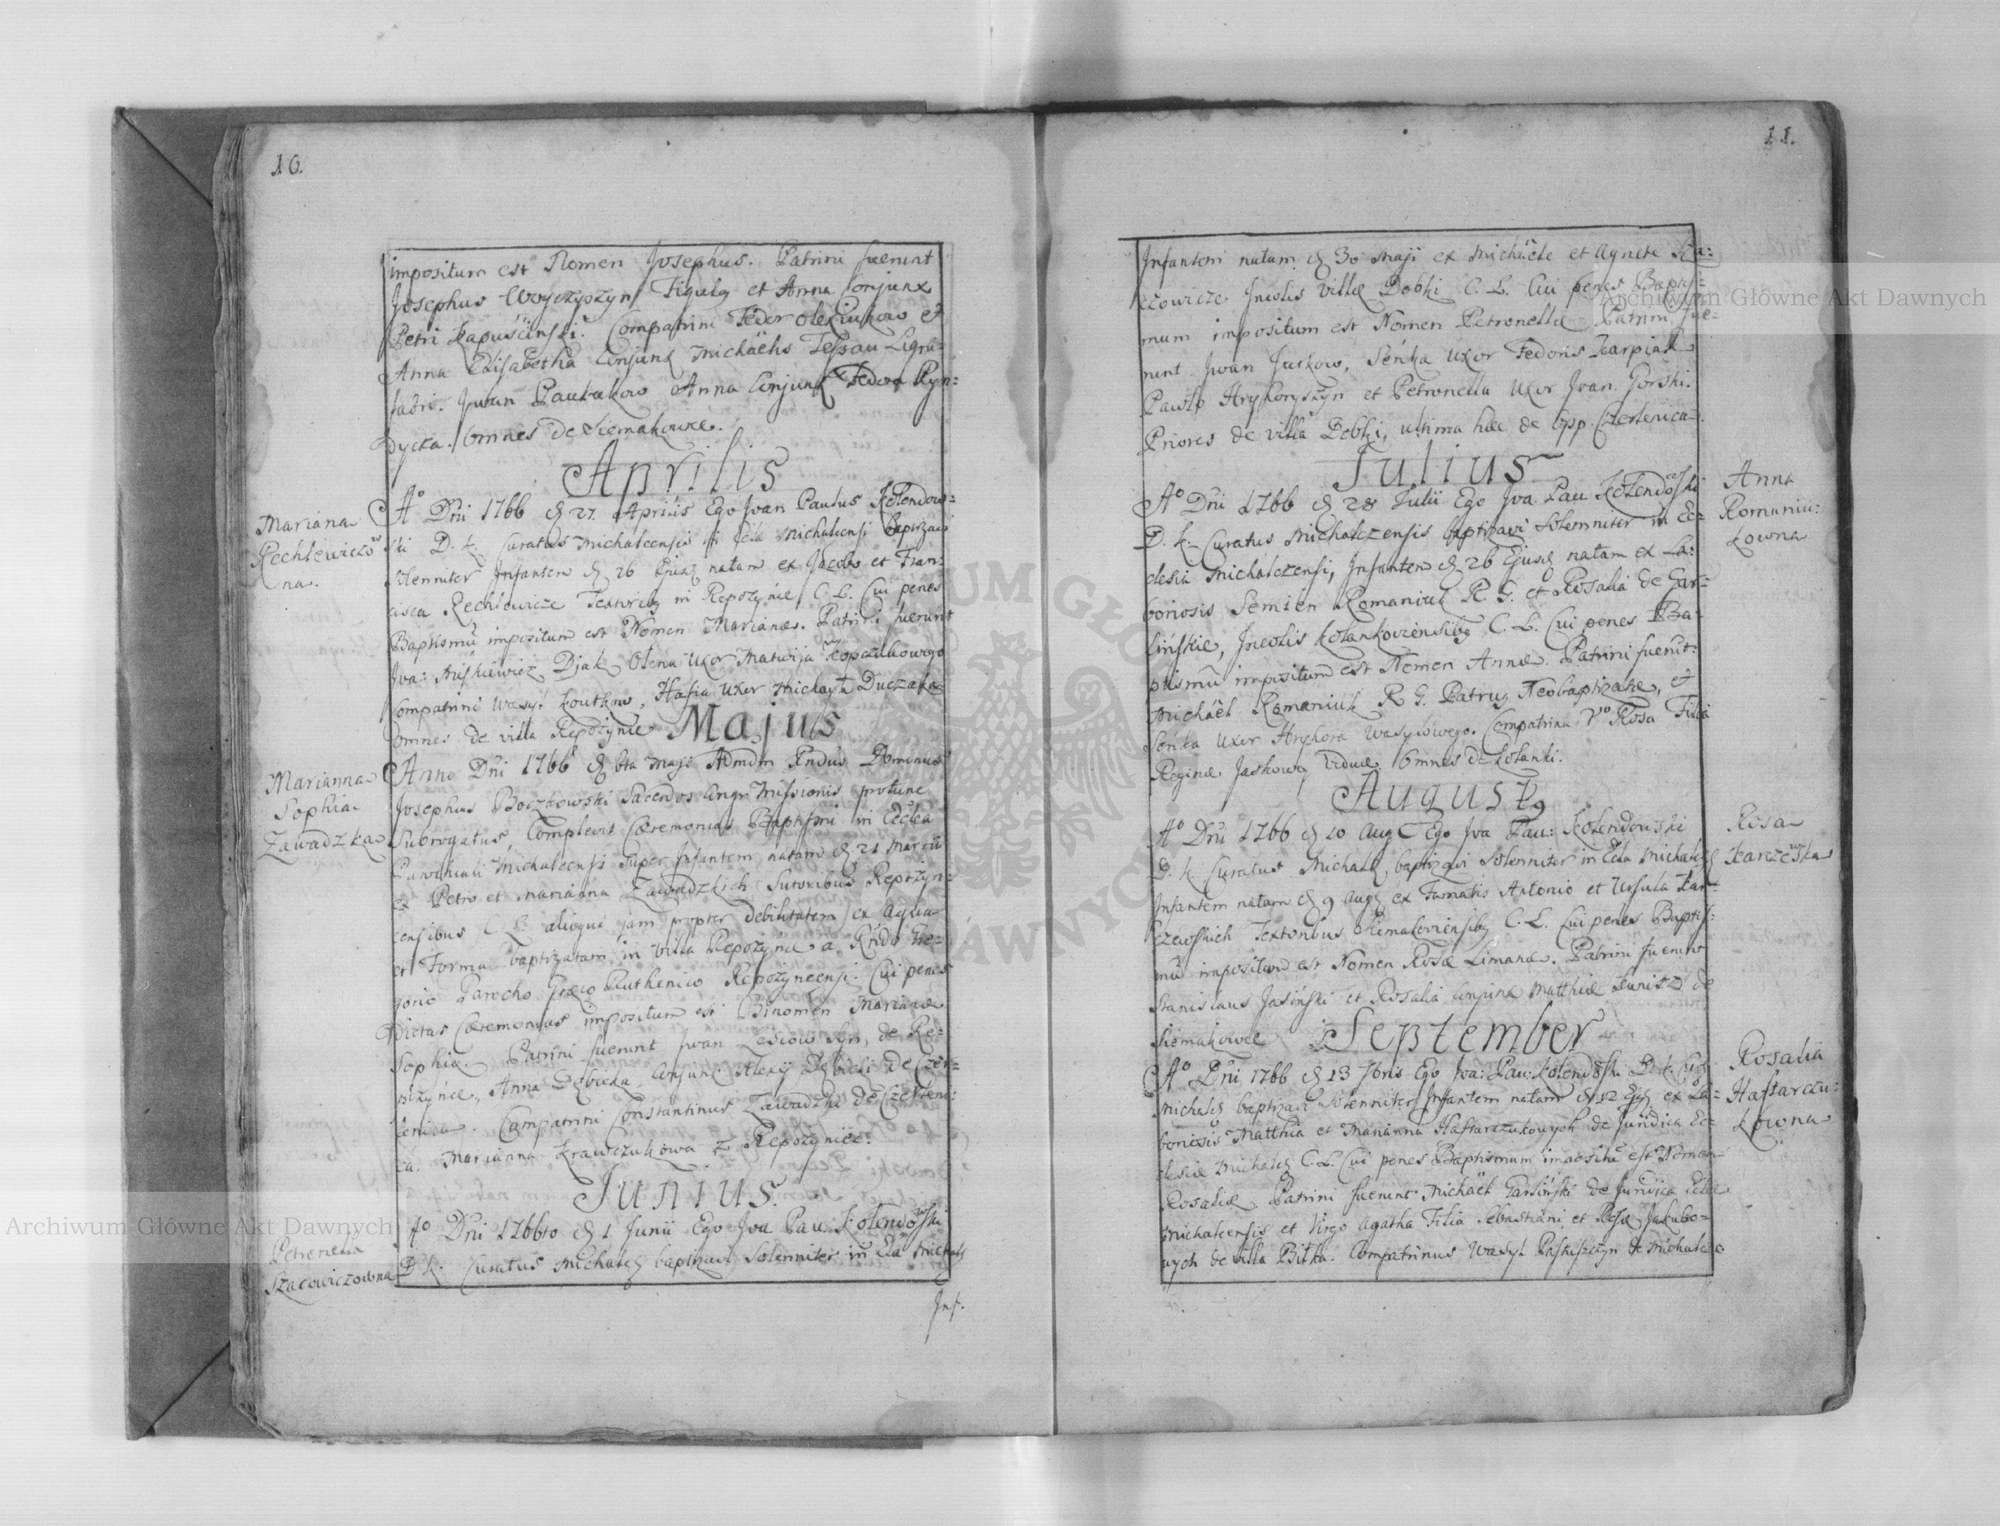 10.
impositum est Nomen Josephus. Patrini fuerunt
Josephus Woyczyszyn Figulg et Anna Conjunx
Petri Kapuścinski. Compatrini Fedor Olexiukow et
Anna Elisabetha Conjunx Michaëlis
Iwan Anna Conjunx Fedora Ryn-
dycka. Omnes de Siemakowce.
Aprilis
Mariana
Rechlewiczow
na.
Aº Dni 1766 27. Aprilis Ego Ivan Paulus Kolendow-
ski D. k. Curatus Michalcensis in Ecla Michalcensi baptizavi
solenniter Infantem 26 Ejusq natam ex Jacobo et Fran-
cisca Rechlewicze Textoribg in Repożynie C. L. Cui penes
Baptismū impositum est Nomen Marianae. Patrini fuerunt
Iva: Miskiewicz Djak Olena Uxor Matwija
Compatrini Wasyl Koutkow, Hasia Uxor Michayla Duczaka
omnes de villa Repożynie
Majus
Marianna
Sophia
Zawadzka
Anno Dni 1766 6ta Maji Admdm Rndus Dominus
Josephus Boczkowski Sacerdos Congr Missionis protunc
Subrogatus, Complevit Caeremonias Baptismi in Ecclea
Parochiali Michalcensi super Infantem natam 21 Martii
ex Petro et Marianna Zawadzkich Sutoribus Repożyn-
censibus C. L. alioqui jam propter debilitatem ex Aqua
et Forma baptizatam in villa Repożynie a Rndo Gre-
gorio Parocho Graeco Ruthenico Repożyncensi. Cui penes
dictas Caeremonias impositum est Binomen Marianae
Sophiae. Patrini fuerunt Iwan Lesiow Syn, de Re-
pożynce, Anna Conjunx Alexij de Czer-
lenica. Compatrini Constantinus Zawadzki de Czerleni-
ca. Marianna Krawczukowa z Repożyniec.
Junius.
Petronella
Szacowiczowna
Aº Dni 1766to 1 Junii Ego Iva Pau: Kolendowski
D k. Curatus Michalcq baptizavi Solenniter in Ecla Michalcq
Inf.
11.
Infantem natam 30 Maji ex Michaële et Agnete Sza-
cowicze Incolis villae Dobki C. L. Cui penes Baptis-
mum impositum est Nomen Petronella Patrini fue-
runt Iwan Juskow, Senka Uxor Fedoris Karpiak
Pawlo Hryhoryszyn et Petronella Uxor Ivan Gorski.
Priores de villa Dobki, ultima haec de Opp. Czerlenica.
Julius
Anna
Romaniu-
kowna
Aº Dni 1766 28 Julii Ego Iva Pau Kolendowski
D. k. Curatus Michalczensis baptizavi Solemniter in Ec-
clesia Michalczensi, Infantem 26 Ejusq natam ex La-
boriosis Semien Romaniuk R. G. et Rosalia de Gar-
lińskie, Incolis Kolankowiensibg C. L. Cui penes Ba-
ptismū impositum est Nomen Annae. Patrini fuerūt:
Michaël Romaniuk R. G. Patruq Neobaptizatae, et
Senka Uxor Hryhora Wasylowego. Compatrina Vº Rosa Filia
Reginae Jaskowej Viduae. Omnes de Kolanki.
Augustg
Rosa
Karczewska
Aº Dni 1766 10 Aug Ego Iva Pau: Kolendowski
D. k. Curatus Michalcq baptizavi Solenniter in Ecla Michalcq
Infantem natam 9 Augq ex Famatis Antonio et Ursula Kar-
czewskich Textoribus Siemakoviensibq C. L. Cui penes Baptis-
mū impositum est Nomen Rosae Limanae. Patrini fuerunt
Stanislaus Jasiński et Rosalia Conjunx Matthiae Kunisz de
Siemakowce
September
Rosalia
Haftarczu-
kowna
Aº Dni 1766 13 7bris Ego Iva: Pau: Kolendowski D. k. Curq
Michalcq baptizavi Solenniter Infantem natam 12 Ejq ex La-
boriosis Matthia et Marianna Haftarczukowych de Juridica Ec-
clesiae Michalcq C. L. Cui penes Baptismum impositū est Nomen
Rosaliae. Patrini fuerunt Michaël Garliński de Juridica Eclae
Michalcensis et Virgo Agatha Filia Sebastiani et Rosae Jakubo-
wych de villa Piłka. Compatrinus Wasyl de Michalcze
Archiwum Główne Akt Dawnych
Archiwum Główne Akt Dawnych